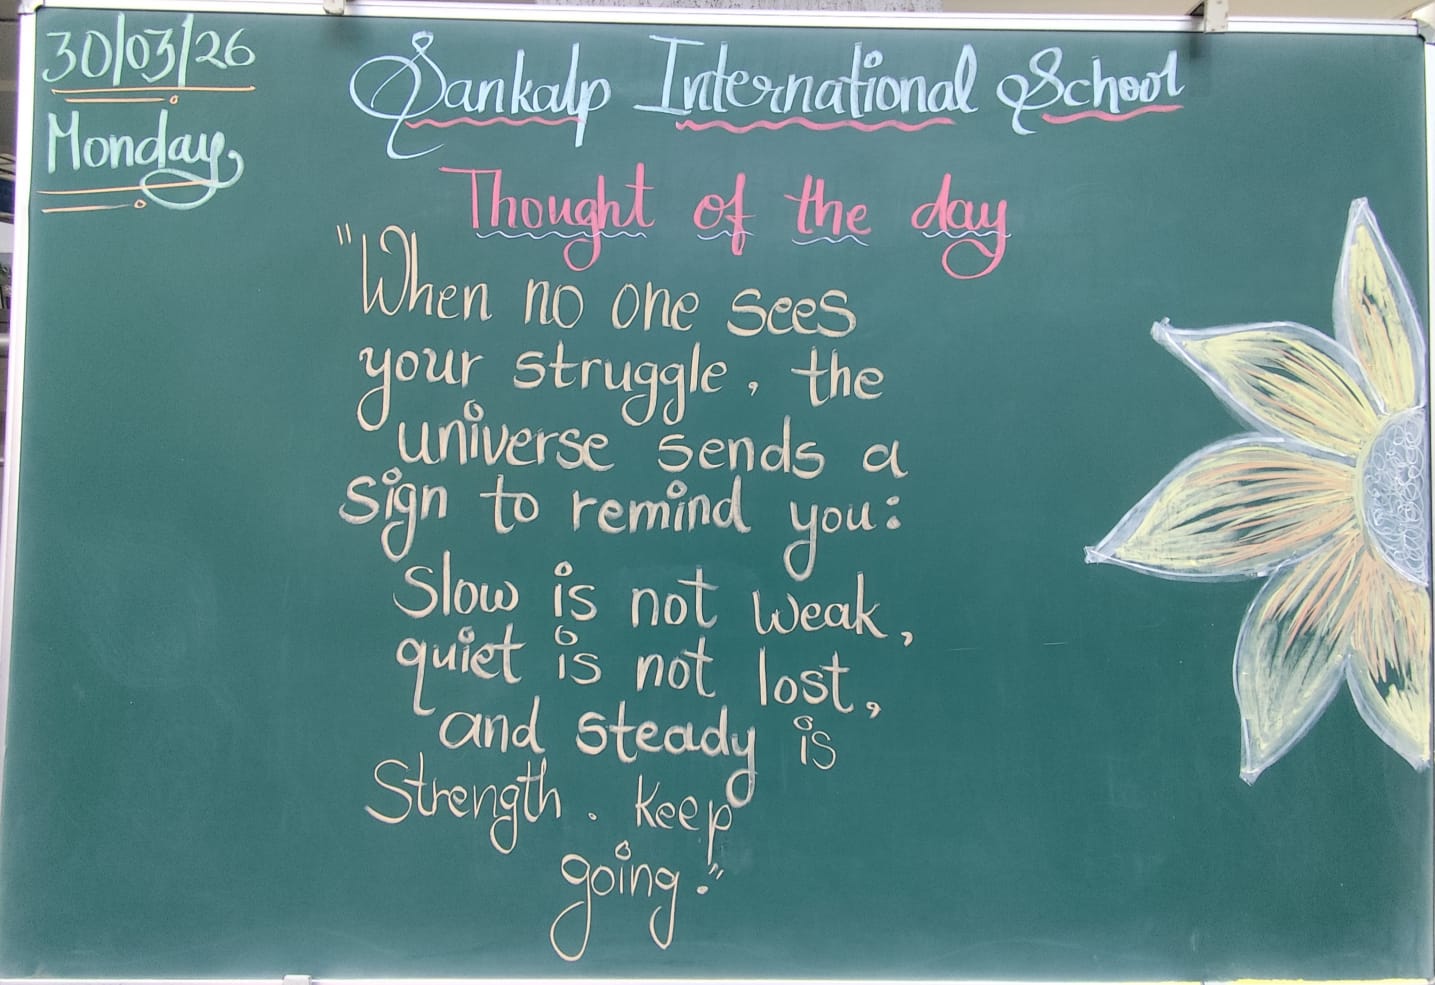 30/03/26
Monday
Sankalp International School
Thought of the day
"When no one sees
your struggle, the
universe sends a
sign to remind you:
Slow is not weak,
quiet is not lost,
and steady is
Strength. Keep
going."